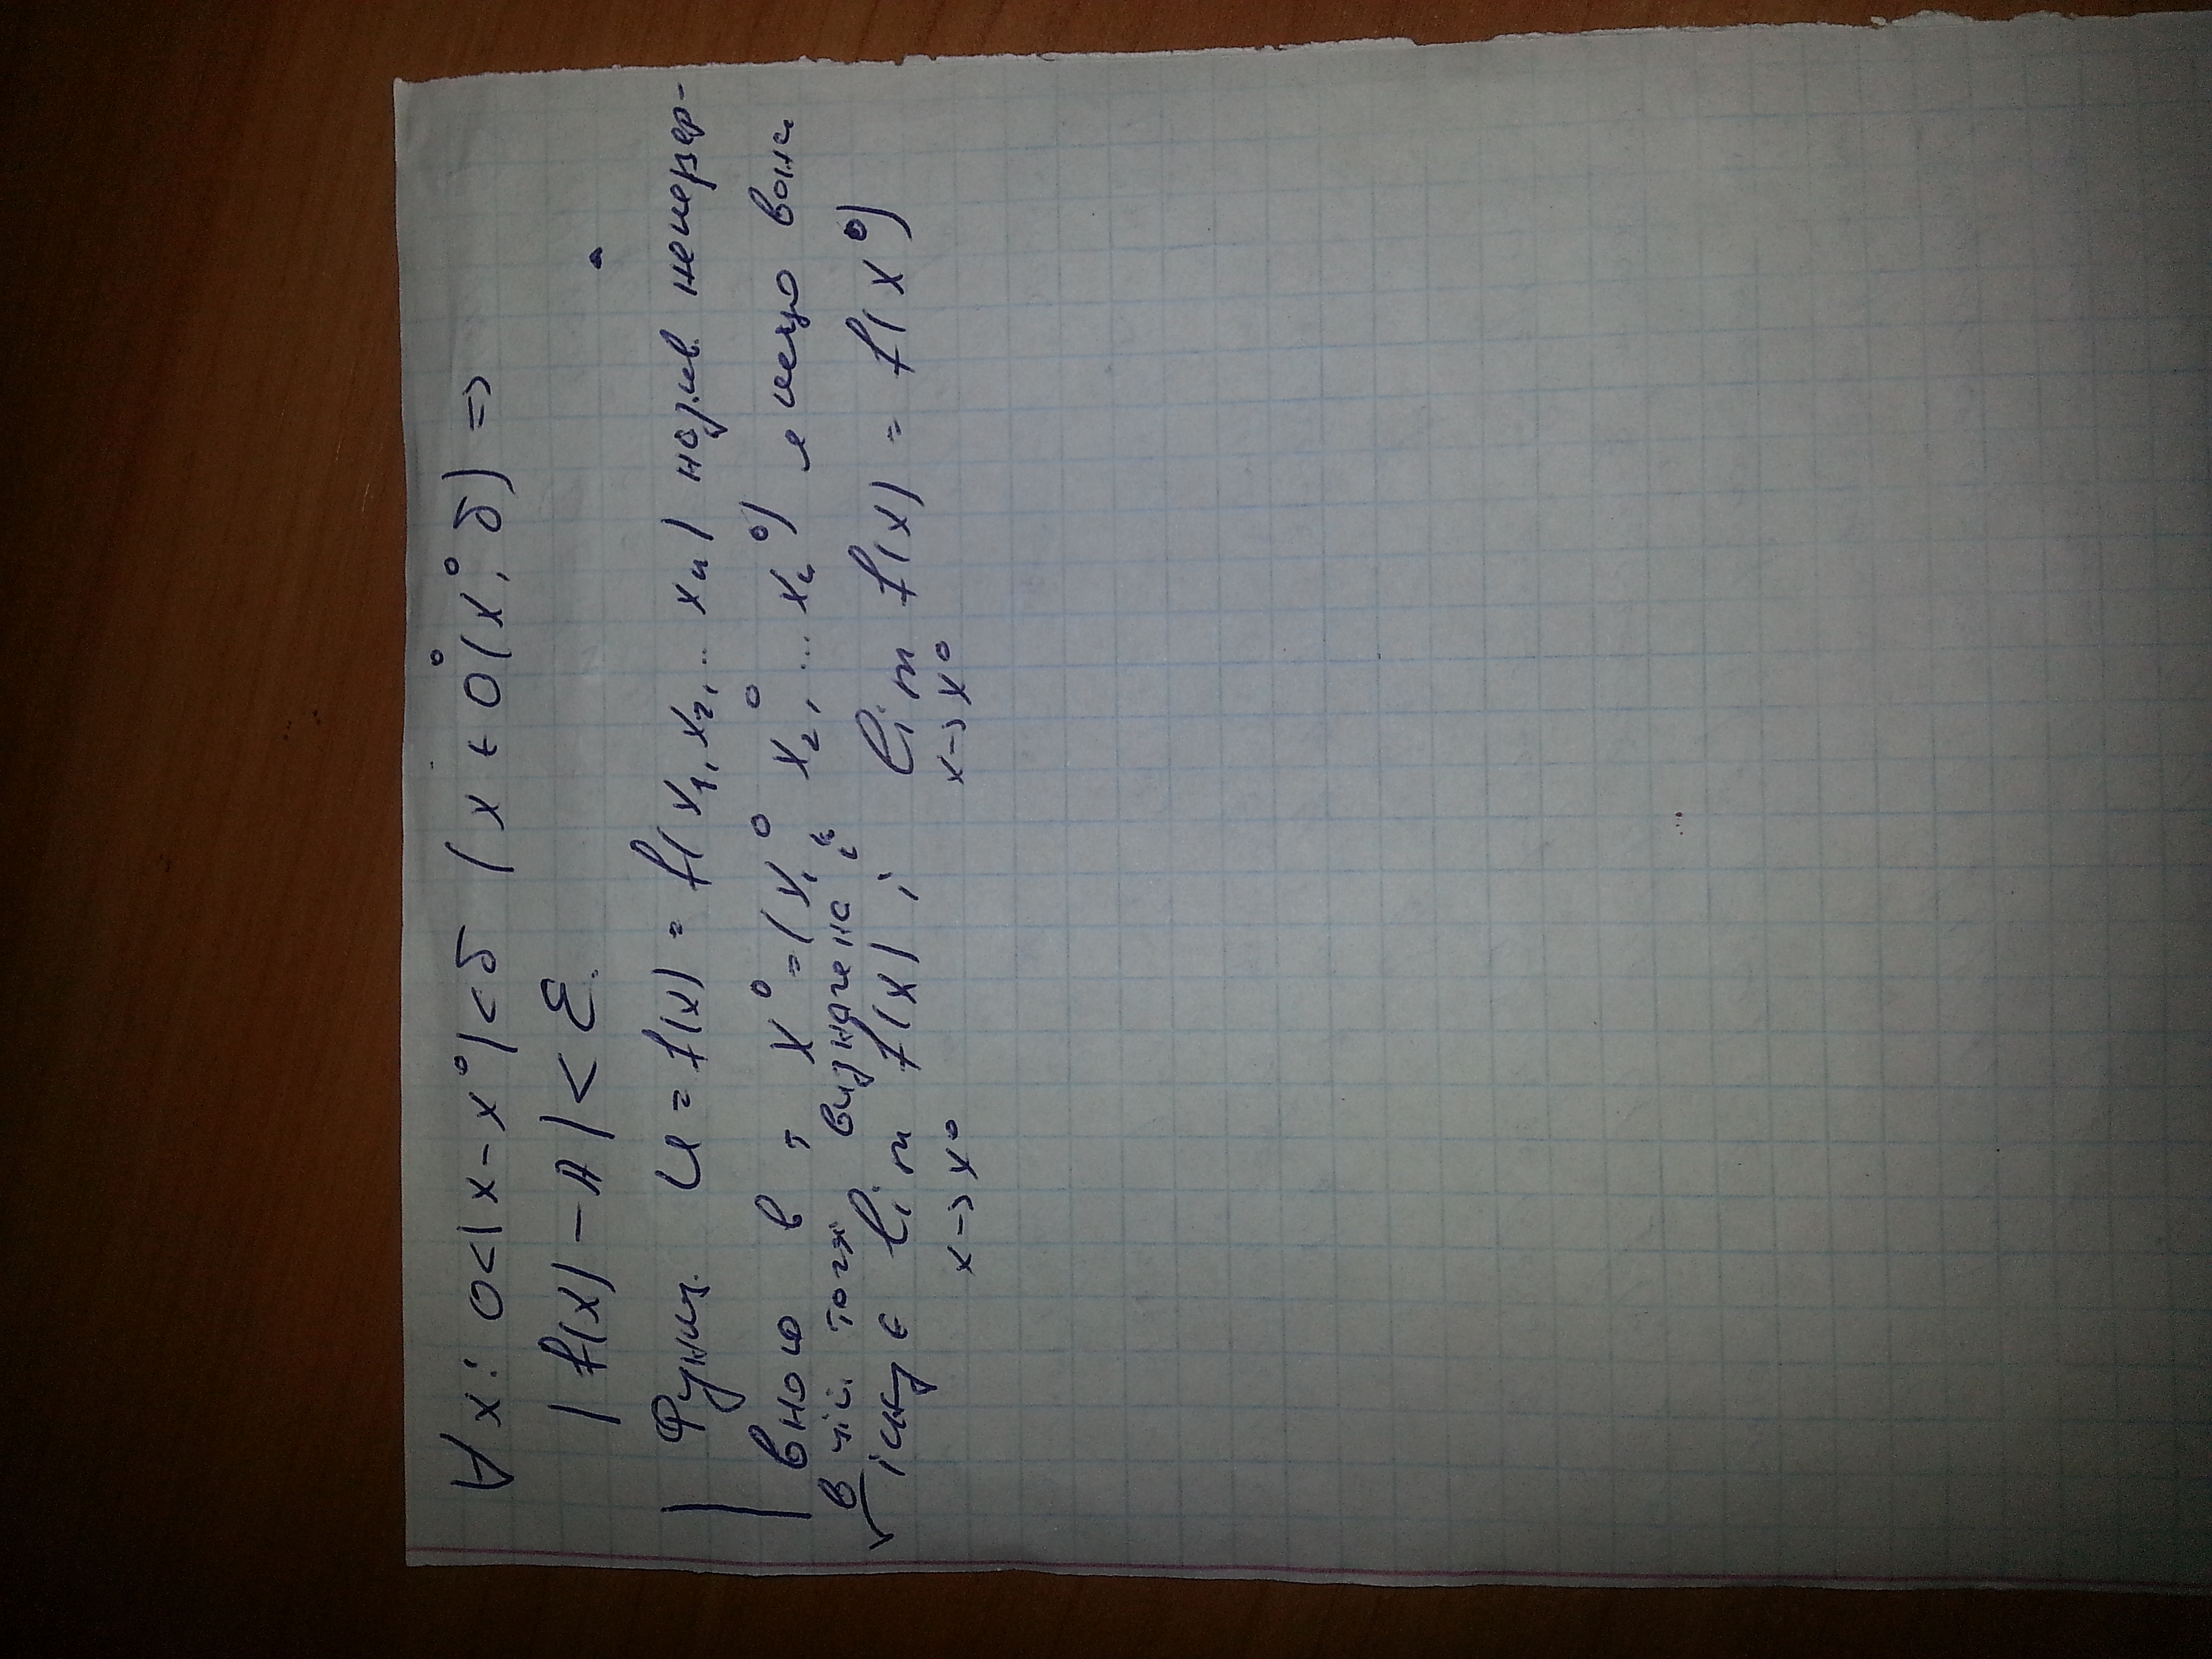 ∀x: 0<|x-x⁰|<δ (x ∈ O̊(x⁰, δ) ⇒
|f(x) - A| < ε.
Функц. U = f(x) = f(x₁, x₂, .. xₙ) назив. неперер-
вною в т x⁰ = (x₁⁰, x₂⁰, ... xₙ⁰) якщо вона
в цій точк визначена і
існує lim f(x) і lim f(x) = f(x⁰)
x→x⁰ x→x⁰